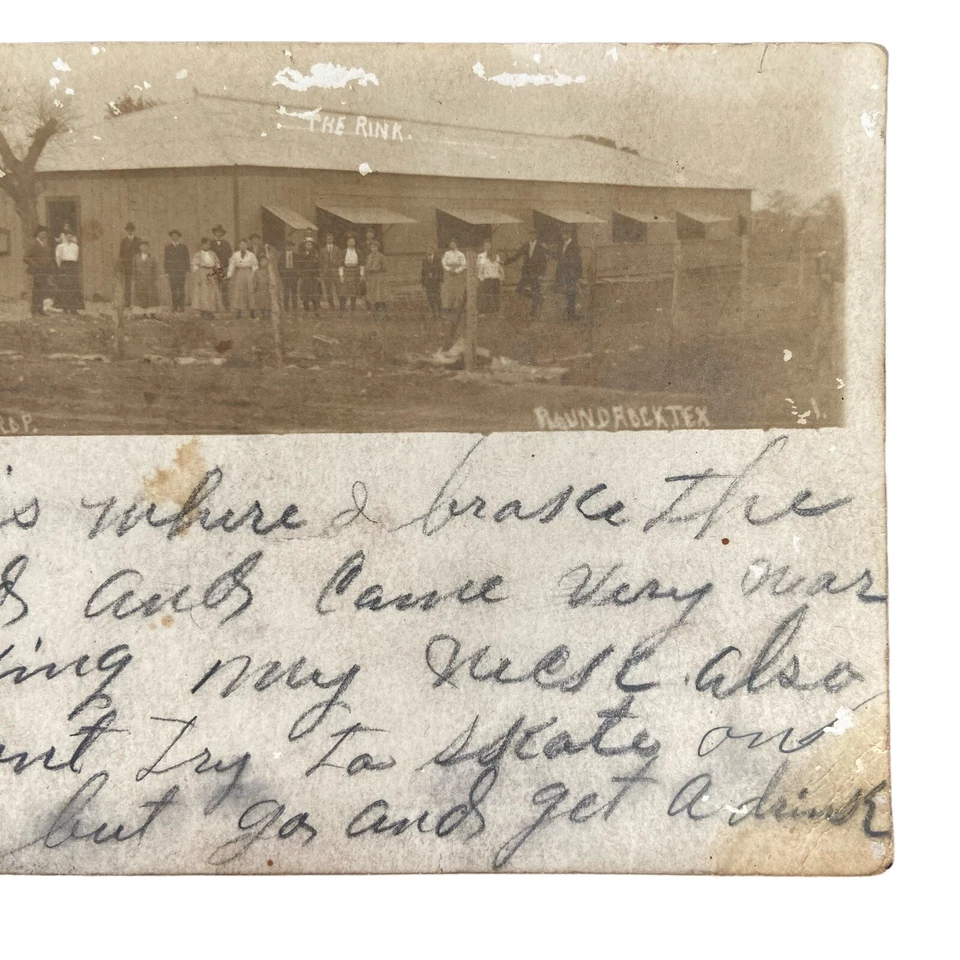 THE RINK.
ROP.
ROUNDROCK TEX
is where I brake the
and came very near
ing my neck also
nt try to skate on
but go and get a drink